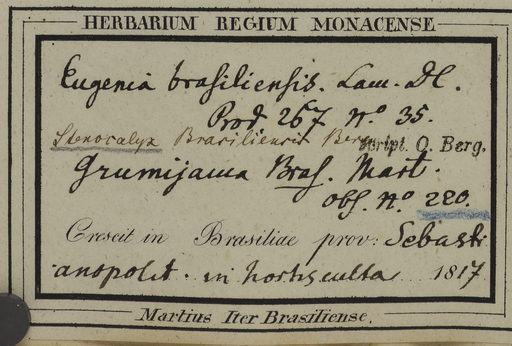 HERBARIUM REGIUM MONACENSE
Eugenia brasiliensis. Lam. DC.
Prod 267 n.o 35.
Stenocalyx Brasiliensis Berg
script. O. Berg.
Grumijama Bras. Mart.
obs. n.o 220.
Crescit in Brasiliae prov: Sebasti
anopolit. in hortis culta 1817
Martius Iter Brasiliense.